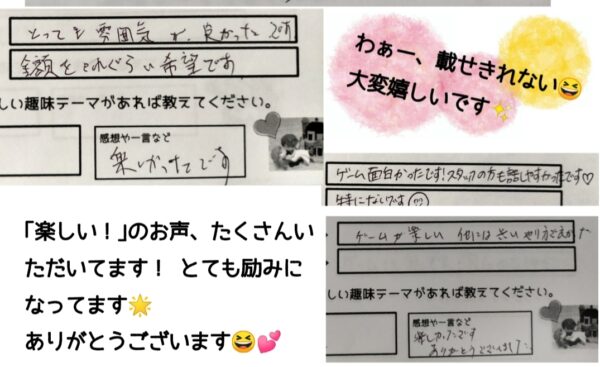 とっても雰囲気が、良かったです
金額をそれぐらい希望です。
しい趣味テーマがあれば教えてください。
感想や一言など
楽しかったです
わぁー、載せきれない😆
大変嬉しいです✨
ゲーム面白かったです!スタッフの方も話しやすかったです♡
特にないです
「楽しい！」のお声、たくさんい
ただいてます！ とても励みに
なってます🌟
ありがとうございます😆💕
ゲームが楽しい 他には
しい趣味テーマがあれば教えてください。
感想や一言など
楽しかったです
ありがとうございました